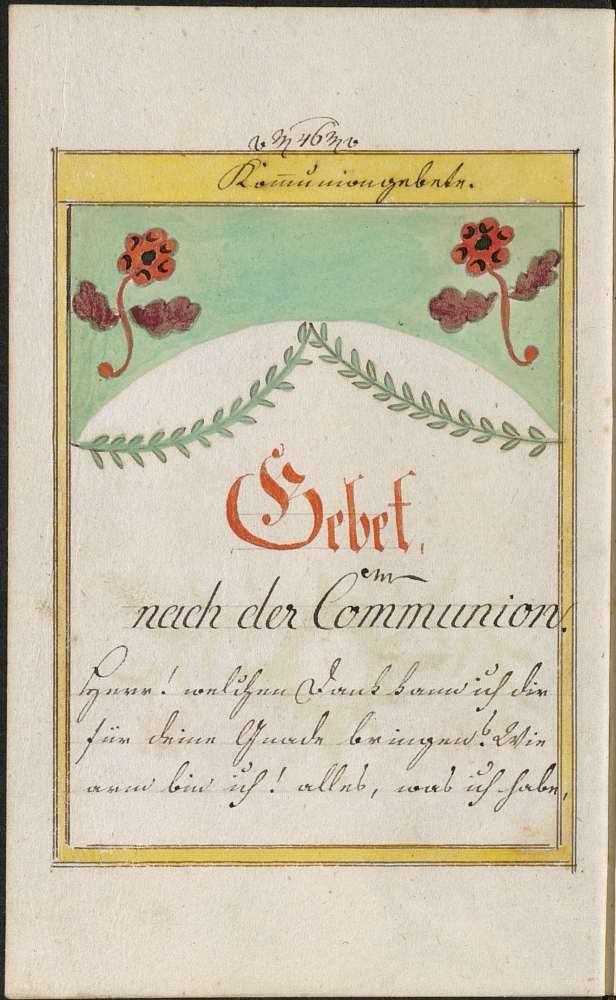 46
Kom̅uniongebete.
Gebet,
nach der Communion.
Herr! welchen Dank kann ich dir
für deine Gnade bringen? Wie
arm bin ich! alles, was ich habe,